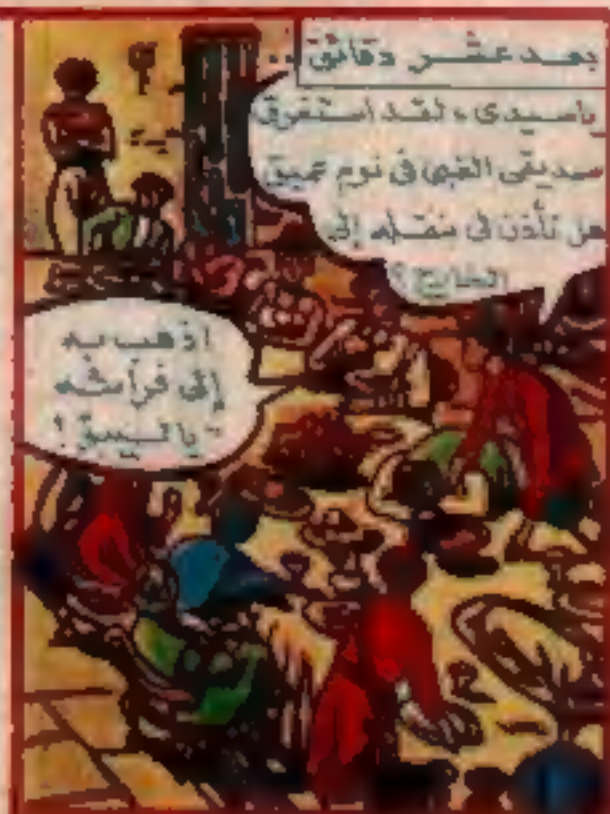 بعد عشر دقائق ..
ياسيدى ، لقد استغرق
صديقى الغبى فى نوم عميق
هل تأذن فى نقله إلى
الخارج ؟
اذهب به
إلى فراشه
يا لبيبو !